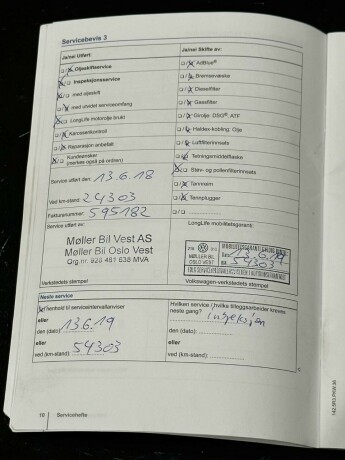 Servicebevis 3
Ja/nei Utført:
Oljeskiftservice
Inspeksjonsservice
med oljeskift
med utvidet serviceomfang
LongLife motorolje brukt
Karosserikontroll
Reparasjon anbefalt
Kundeønsker
(merkes også på ordren)
Service utført den: 13.6.18
Ved km-stand: 24303
Fakturanummer: 595182
Service utført av:
Møller Bil Vest AS
Møller Bil Oslo Vest
Org.nr. 920 461 638 MVA
Verkstedets stempel
Ja/nei Skifte av:
AdBlue®
Bremsevæske
Dieselfilter
Gassfilter
Girolje. DSG®, ATF
Haldex-kobling: Olje
Luftfilterinnsats
Tetningsmiddelflaske
Støv- og pollenfilterinnsats
Tannreim
Tennplugger
LongLife mobilitetsgaranti:
MØLLER BIL
OSLO VEST
13.6.19
54303
Volkswagen-verkstedets stempel
Neste service
I henhold til serviceintervallanviser
eller
den (dato): 13.6.19
eller
ved (km-stand): 54303
Hvilken service (hvilke tilleggsarbeider kreves
neste gang? Inspeksjon
den (dato):
eller
ved (km-stand):
16 Servicehefte